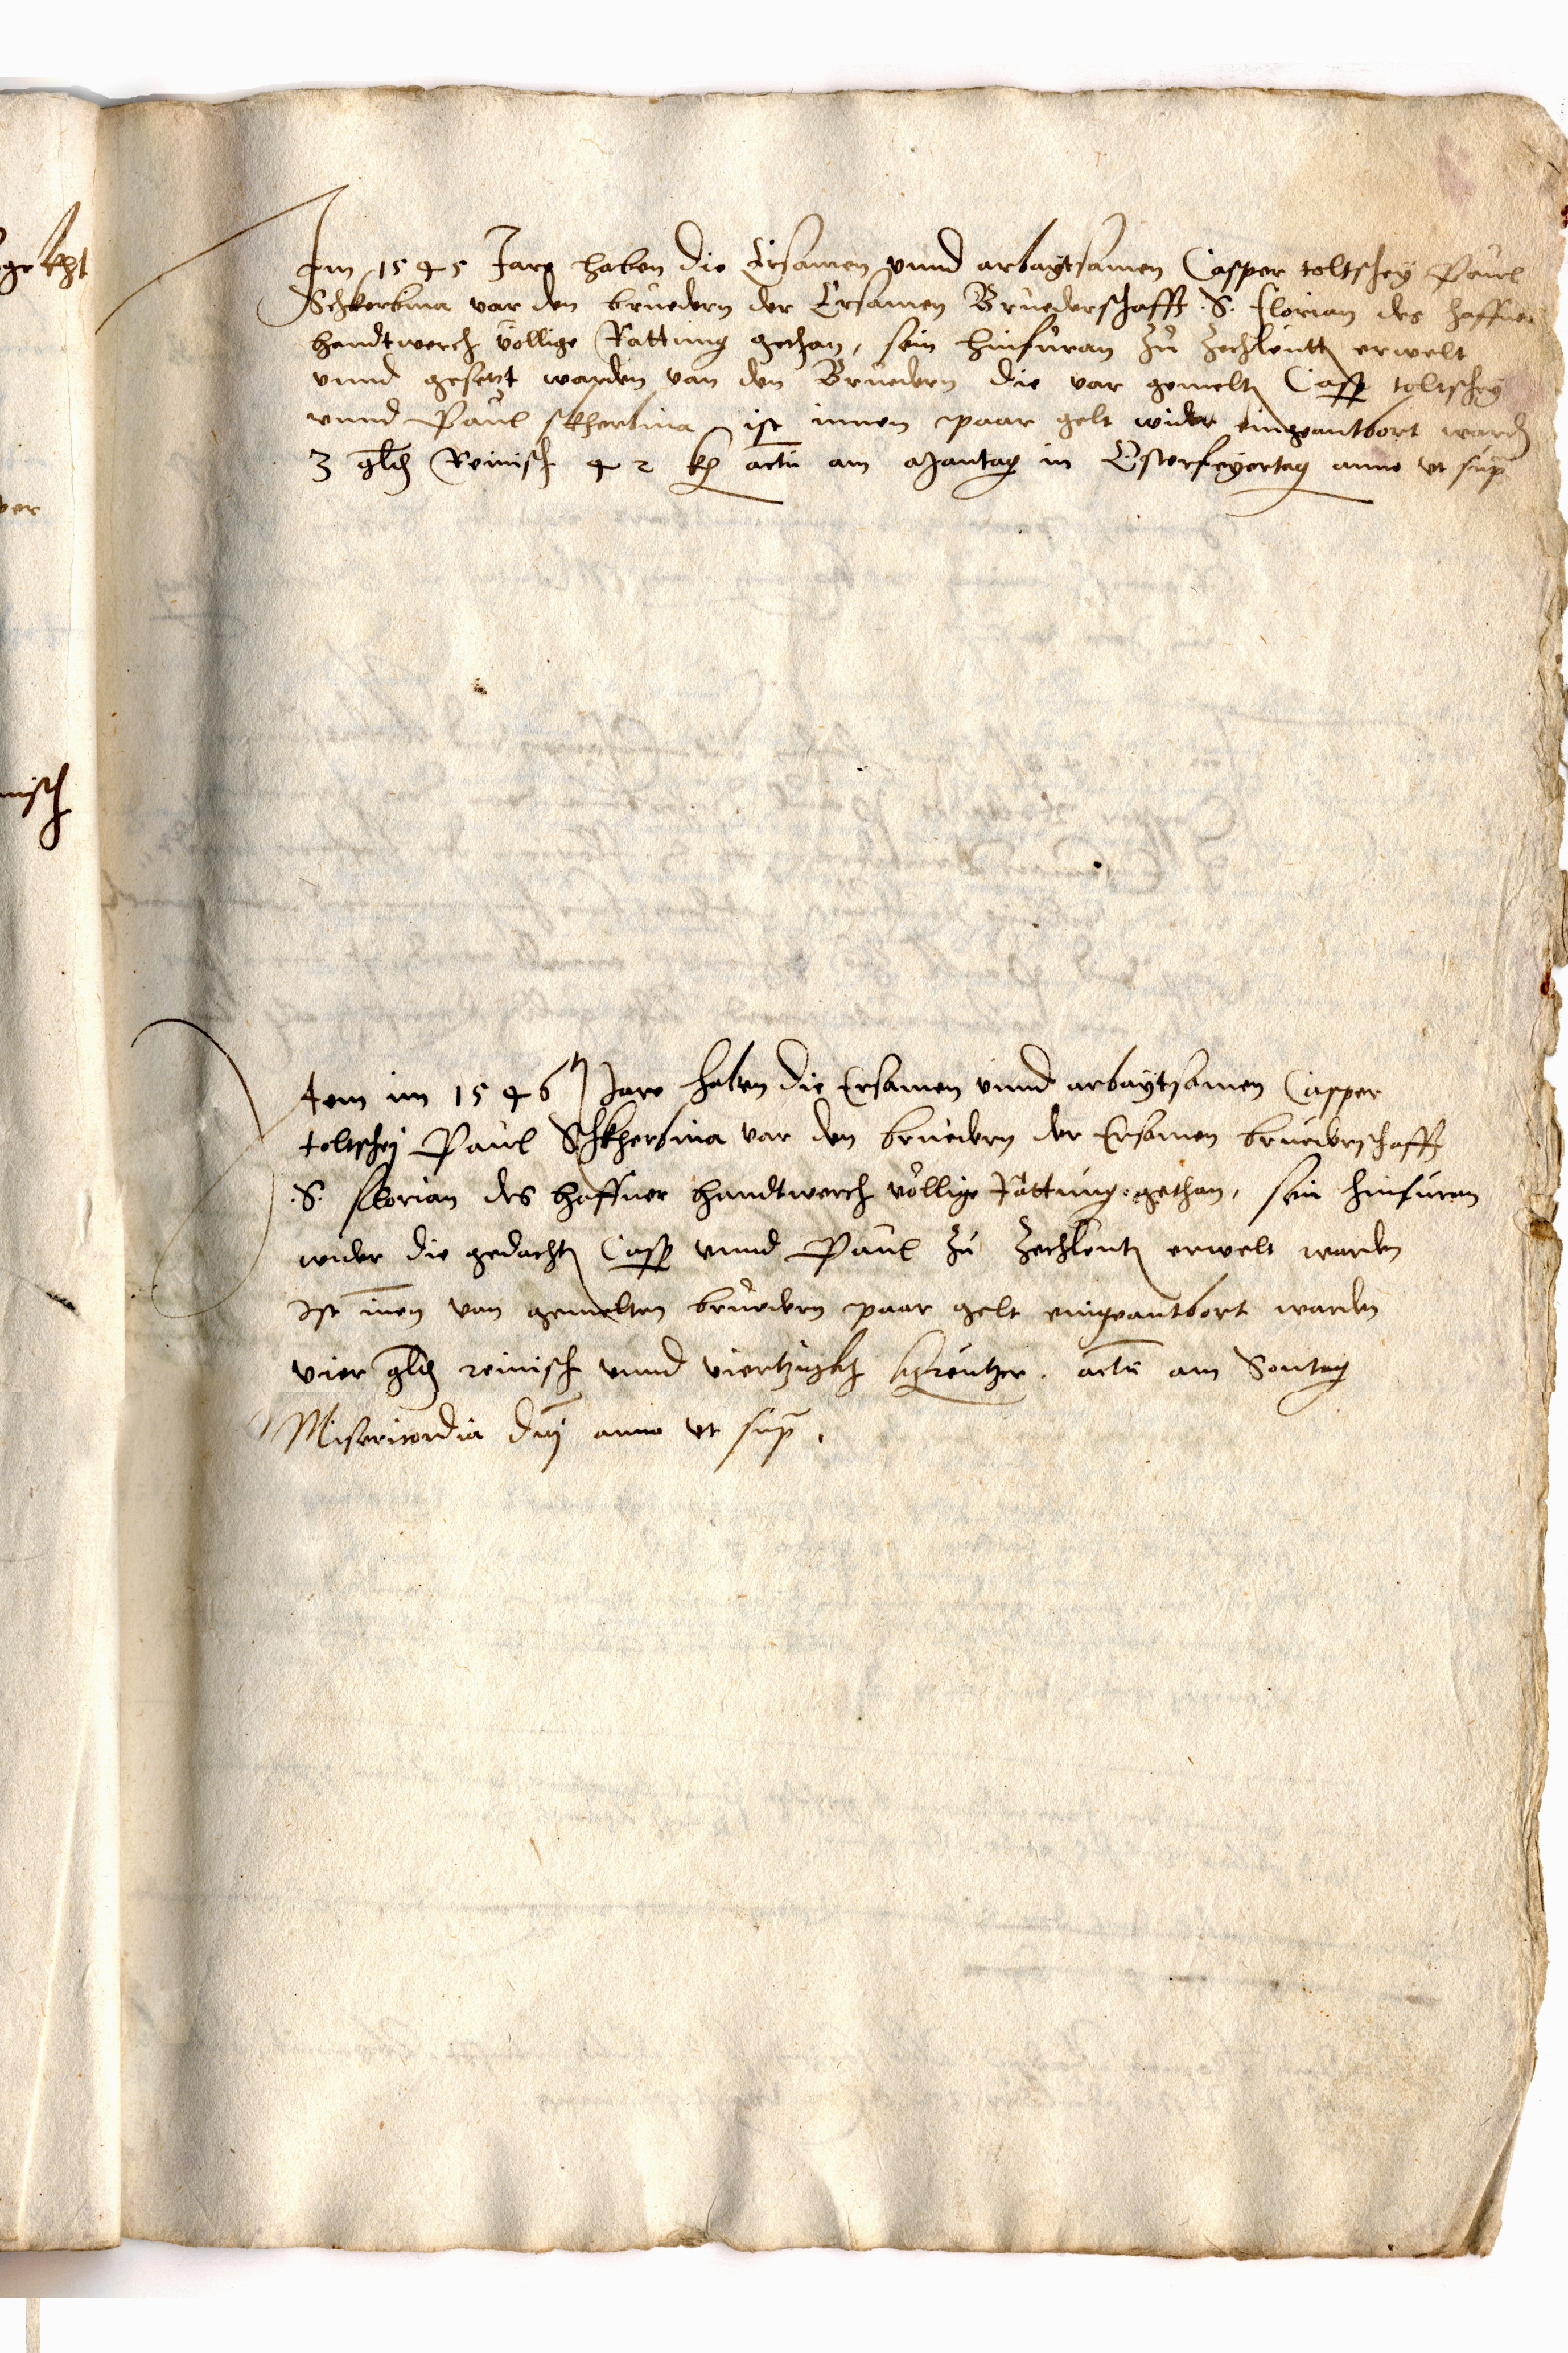 Im 1545 Jare haben die Ersamen vnnd arbaytsamen Casper toltschey Paul
Schkerbina var den bruedern der Ersamen Bruederschafft .S. Florian des haffner
handtwerch völlige Rattung gethan, sein hinfüran zu Zechleutt erwelt
vnnd gesetzt warden van den Bruedern die var gemelt Casp toltschey
vnnd Paul skherbina ist innen paar gelt wider eingeantbort ward
3 gld Reinisch 42 kr actu am Mantag in Osterfeyertag anno vt sup
Item im 1546 Jare haben die Ersamen vnnd arbaytsamen Casper
toltschey Paul Schkherbina var den bruedern der Ersamen bruederschafft
.S. Florian des haffner handtwerch völlige Rattung gethan, sein hinfuran
wider die gedacht Casp vnnd Paul zu Zechleut erwelt warden
Ist inen van gemelten bruedern paar gelt eingeantbort warden
vier gld reinisch vnnd viertzigkh khreutzer. actu am Sontag
Misericordia dnj anno vt sup.